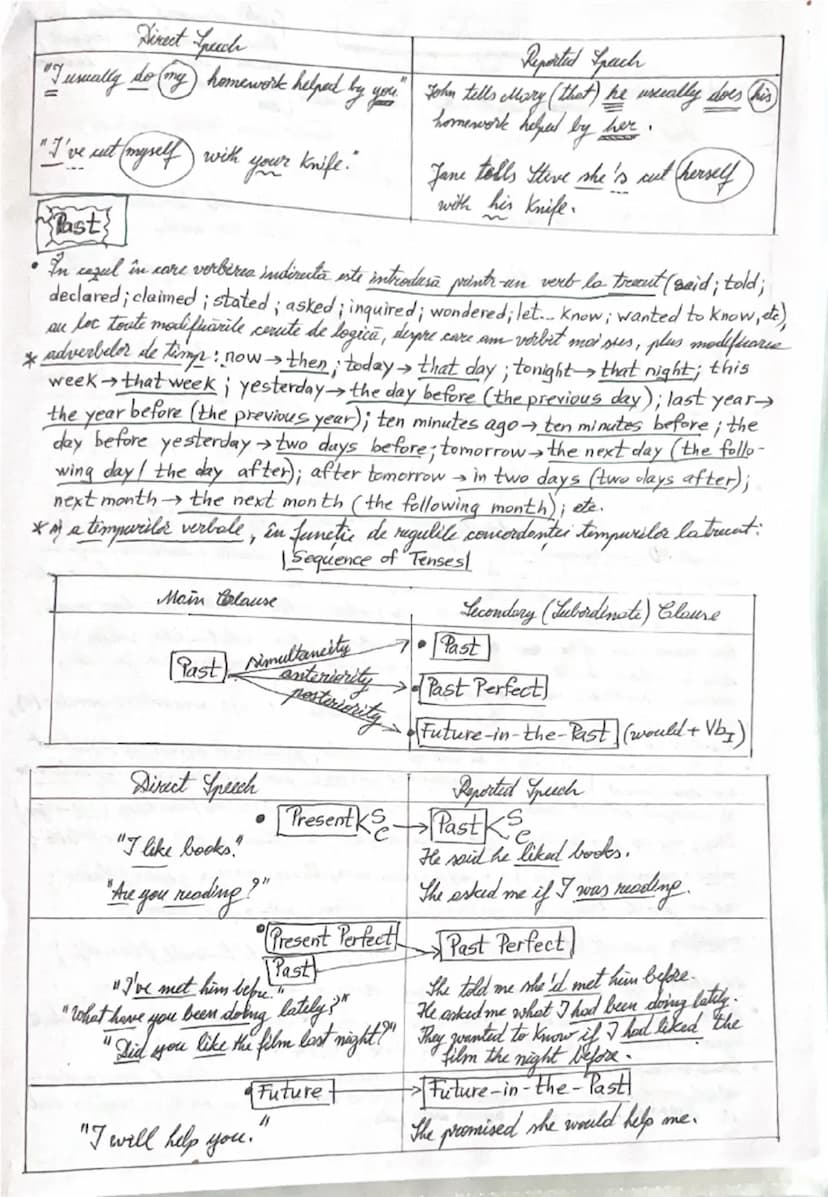 Direct Speech
Reported Speech
"I usually do my homework helped by you."
John tells Mary (that) he usually does his
homework helped by her.
"I've cut myself with your knife."
Jane tells Steve she's cut herself
with his knife.
Past
• În cazul în care vorbirea indirectă este introdusă printr-un verb la trecut (said; told;
declared; claimed; stated; asked; inquired; wondered; let... know; wanted to know, etc)
au loc toate modificările cerute de logică, despre care am vorbit mai sus, plus modificarea
* adverbelor de timp: now → then; today → that day; tonight → that night; this
week → that week; yesterday → the day before (the previous day); last year →
the year before (the previous year); ten minutes ago → ten minutes before; the
day before yesterday → two days before; tomorrow → the next day (the follo-
wing day / the day after); after tomorrow → in two days (two days after);
next month → the next month (the following month); etc.
* și a timpurilor verbale, în funcție de regulile concordanței timpurilor la trecut:
Sequence of Tenses
Main Clause
Secondary (Subordinate) Clause
Past
simultaneity
• Past
anteriority
• Past Perfect
posteriority
• Future-in-the-Past (would + VbI)
Direct Speech
Reported Speech
• Present < S C → Past < S C
"I like books."
He said he liked books.
"Are you reading?"
She asked me if I was reading.
• Present Perfect
Past
Past Perfect
"I've met him before."
She told me she'd met him before.
"What have you been doing lately?"
He asked me what I had been doing lately.
"Did you like the film last night?"
They wanted to know if I had liked the
film the night before.
• Future → Future-in-the-Past
"I will help you."
She promised she would help me.